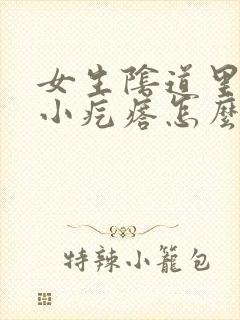 女生陰道里
小疙瘩怎麼
特辣小籠包